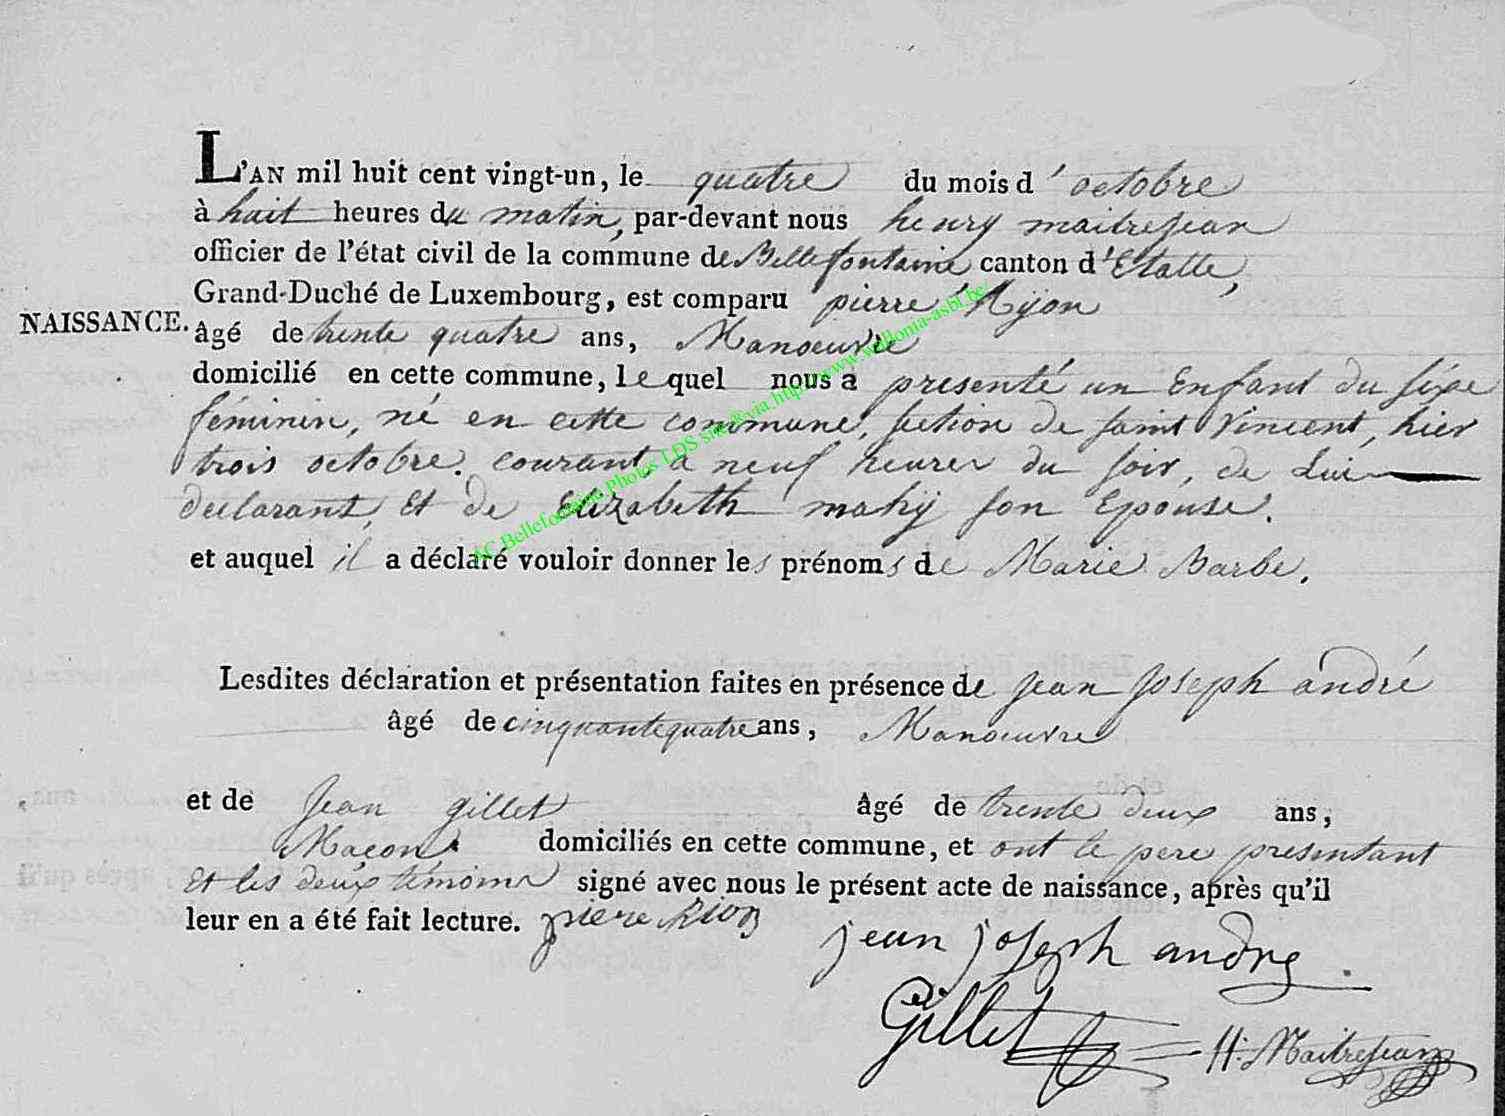 L'AN mil huit cent vingt-un, le quatre du mois d'octobre
à huit heures du matin, par-devant nous henry maitrejean
officier de l'état civil de la commune de Bellefontaine canton d'Etalle,
Grand-Duché de Luxembourg, est comparu pierre Rijon
NAISSANCE.
âgé de trente quatre ans, Manoeuvre
domicilié en cette commune, lequel nous a presenté un Enfant du sexe
féminin, né en cette commune, section de saint Vincent, hier
trois octobre. courant, a neuf heures du soir, de Lui
declarant, et de Elizabeth mahij son Epouse.
et auquel il a déclaré vouloir donner les prénoms de Marie Barbe.
Lesdites déclaration et présentation faites en présence de jean joseph andré
âgé de cinquante quatre ans, Manoeuvre
et de Jean gillet âgé de trente deux ans,
Maçon domiciliés en cette commune, et ont le pere presentant
et les deux témoins signé avec nous le présent acte de naissance, après qu'il
leur en a été fait lecture. piere Rion
jean joseph andre
Gillet H. Maitrejean
AC Bellefontaine Photos LDS site &via http://www.wallonia-asbl.be/